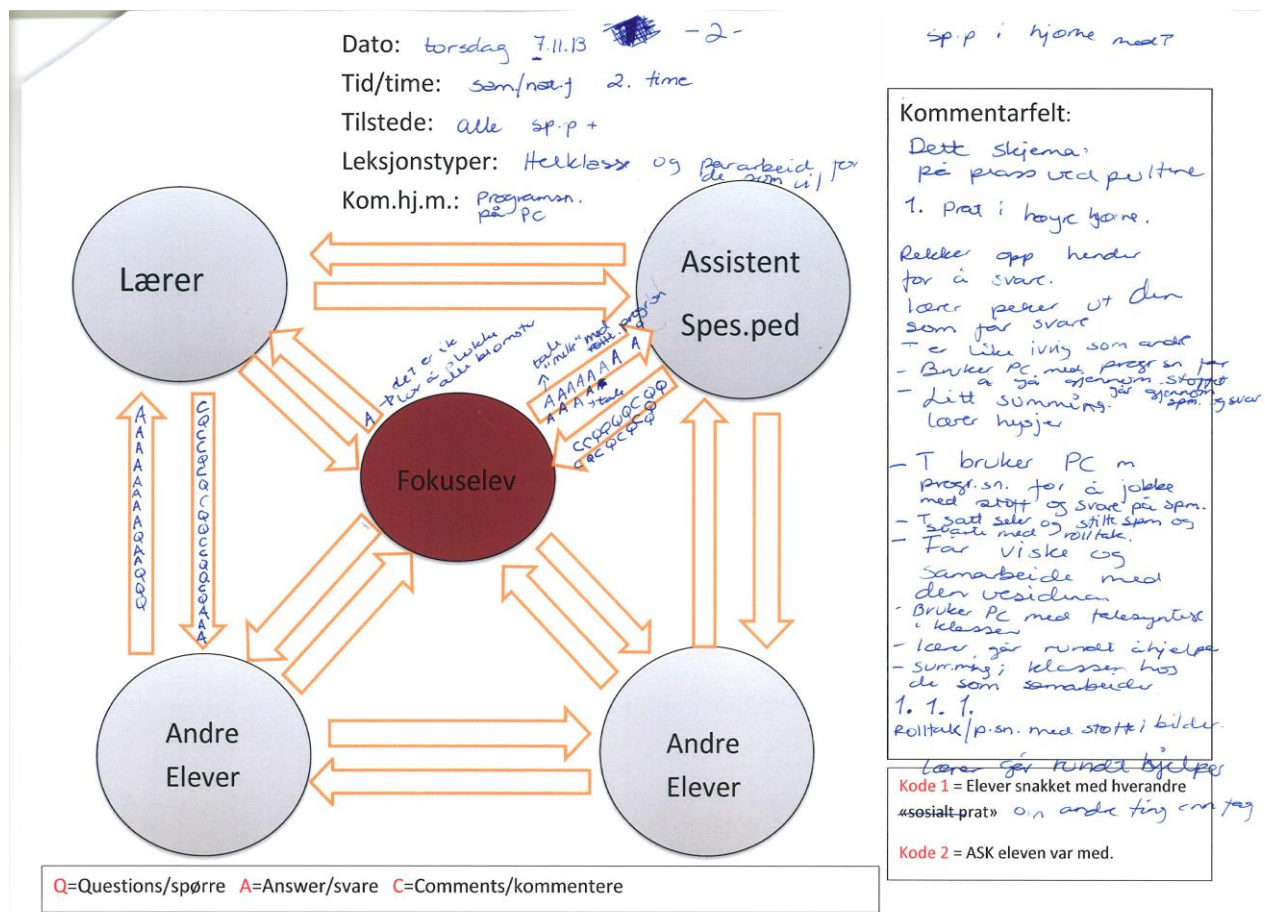 Dato: torsdag 7.11.13 -2-
Tid/time: sam/nat.f 2. time
Tilstede: alle sp.p +
Leksjonstyper: Helklasse og pararbeid for
de som vil
Kom.hj.m.: Programsn.
på PC
sp.p i hjørne med?
Lærer
Assistent
Spes.ped
Fokuselev
Andre
Elever
Andre
Elever
A → det er ik
lov å plukke
alle blomster
tale
"milk" med
rollt. progr.sn
AAAAAAA A
AAAA
→ tale
AAAAAAAAQAAQQQ
Kommentarfelt:
Dett skjema:
på plass ved pultene
1. Prat i høyre hjørne.
Rekker opp hender
for å svare.
lærer peker ut den
som får svare
T er like ivrig som andre
- Bruker PC med progr.sn for
å gå gjennom stoffet
går gjennom
spm. og svar
- Litt summing.
lærer hysjer
- T bruker PC m
progr.sn. for å jobbe
med stoff og svare på spm.
- T satt selv og stilte spm og
svarte med rolltalk.
- Får viske og
samarbeide med
den vesidena
- Bruker PC med talesyntese
i klassen
- lærer går rundt å hjelpe
- summing i klassen hos
de som samarbeider
1. 1. 1.
Rolltalk/p.sn. med stoff i bilder.
Lærer går rundt hjelper
Kode 1 = Elever snakket med hverandre
«sosialt prat» om andre ting enn fag
Kode 2 = ASK eleven var med.
Q=Questions/spørre A=Answer/svare C=Comments/kommentere